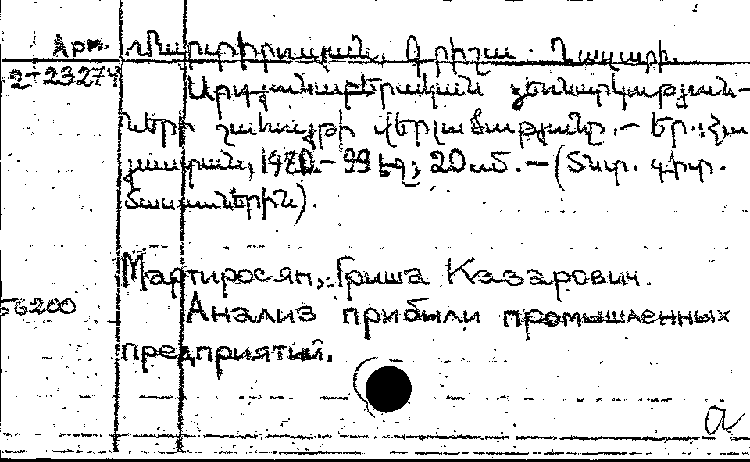 Арм.
2-23274
Մարտիրոսյան, Գրիշա Ղազարի.
Արդյունաբերական ձեռնարկություն-
ների շահույթի վերլուծությունը. — Եր.: Հա
յաստան, 1980. — 99 էջ; 20 սմ. — (Տնտ. գիտ.
Մартиросян, Гриша Казарович.
56200
Анализ прибыли промышленных
предприятий.
a